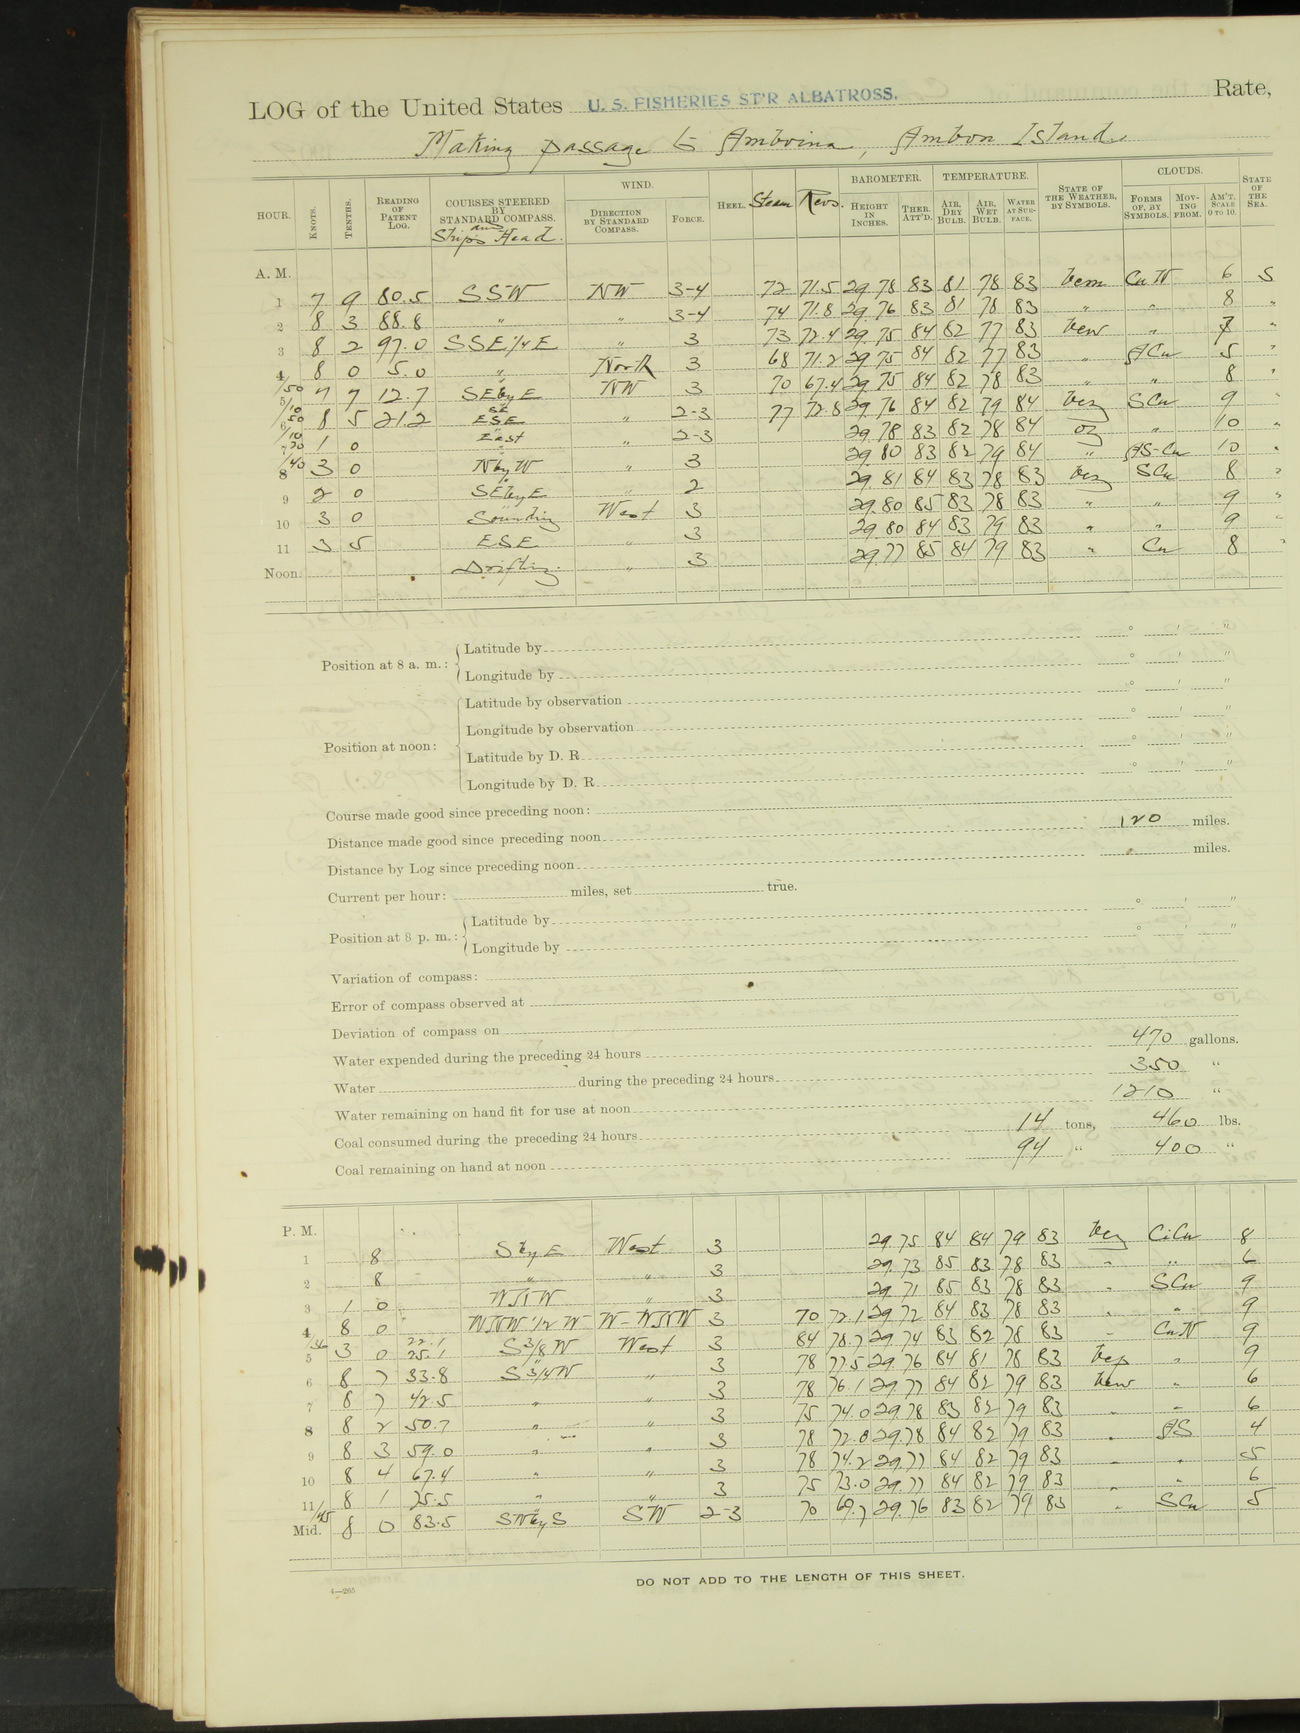 LOG of the United States U. S. FISHERIES ST'R ALBATROSS. Rate,
Making passage to Amboina, Ambon Island
HOUR. KNOTS. TENTHS. READING OF PATENT LOG. COURSES STEERED BY STANDARD COMPASS. and Ship's Head. WIND. DIRECTION BY STANDARD COMPASS. FORCE. HEEL. Steam Revs. BAROMETER. HEIGHT IN INCHES. THER. ATT'D. TEMPERATURE. AIR, DRY BULB. AIR, WET BULB. WATER AT SURFACE. STATE OF THE WEATHER, BY SYMBOLS. CLOUDS. FORMS OF, BY SYMBOLS. MOVING FROM. AM'T, SCALE 0 TO 10. STATE OF THE SEA.
A. M.
1 7 9 80.5 SSW NW 3-4 72 71.5 29.78 83 81 78 83 Cu N 6 S
2 8 3 88.8 " " 3-4 74 71.8 29.76 83 81 78 83 " " 8 "
3 8 2 97.0 SSE 1/4 E " 3 73 72.4 29.75 84 82 77 83 " 7 "
4 8 0 5.0 " North 3 68 71.2 29.75 84 82 77 83 " A Cu 5 "
5 7 7 12.7 SE by E NW 3 70 67.4 29.75 84 82 78 83 " " 8 "
6 8 5 21.2 ESE " 2-3 77 72.8 29.76 84 82 79 84 bcz S Cu 9 "
7 1 0 East " 2-3 29.78 83 82 78 84 oz 10 "
8 3 0 N by W " 3 29.80 83 82 79 84 " AS-Cu 10 "
9 2 0 SE by E " 2 29.81 84 83 78 83 bcz S Cu 8 "
10 3 0 Sounding West 3 29.80 85 83 78 83 " " 9 "
11 3 5 ESE " 3 29.80 84 83 79 83 " " 9 "
Noon. Drifting. " 3 29.77 85 84 79 83 " Cu 8 "
Position at 8 a. m.: Latitude by ° ' "
Longitude by ° ' "
Position at noon: Latitude by observation ° ' "
Longitude by observation ° ' "
Latitude by D. R. ° ' "
Longitude by D. R. ° ' "
Course made good since preceding noon:
Distance made good since preceding noon 120 miles.
Distance by Log since preceding noon miles.
Current per hour: miles, set true.
Position at 8 p. m.: Latitude by ° ' "
Longitude by ° ' "
Variation of compass:
Error of compass observed at
Deviation of compass on
Water expended during the preceding 24 hours 470 gallons.
Water during the preceding 24 hours 350 "
Water remaining on hand fit for use at noon 1210 "
Coal consumed during the preceding 24 hours 14 tons, 460 lbs.
Coal remaining on hand at noon 94 " 400 "
P. M.
1 8 S by E West 3 29.75 84 84 79 83 bcz Ci Cu 8
2 8 " " 3 29.73 85 83 78 83 " " 6
3 1 0 WNW " 3 29.71 85 83 78 83 " S Cu 9
4 8 0 WNW 1/2 W W-WNW 3 70 72.1 29.72 84 83 78 83 " " 9
5 3 0 22.1 25.1 S 3/8 W West 3 84 78.7 29.74 83 82 78 83 " Cu N 9
6 8 7 33.8 S 3/4 W " 3 78 77.5 29.76 84 81 78 83 bcp " 9
7 8 7 42.5 " " 3 78 76.1 29.77 84 82 79 83 " 6
8 8 2 50.7 " " 3 75 74.0 29.78 83 82 79 83 " " 6
9 8 3 59.0 " " 3 78 72.8 29.78 84 82 79 83 " AS 4
10 8 4 67.4 " " 3 78 74.2 29.77 84 82 79 83 " " 5
11 8 1 75.5 " " 3 75 73.0 29.77 84 82 79 83 " " 6
Mid. 8 0 83.5 SW by S SW 2-3 70 69.7 29.76 83 82 79 83 " S Cu 5
DO NOT ADD TO THE LENGTH OF THIS SHEET.
4—265